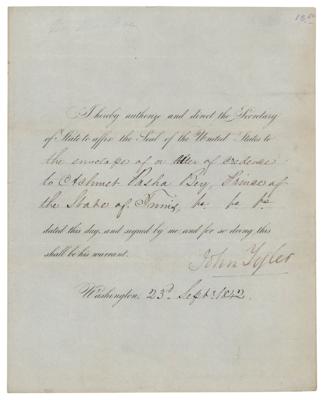 I hereby authorize and direct the Secretary
of State to affix the Seal of the United States to
the envelope of a letter of credence
to Achmet Pasha Bey, Prince of
the State of Tunis, &c. &c. &c.
dated this day, and signed by me; and for so doing this
shall be his warrant.
John Tyler
Washington, 23d Sept. 1842.